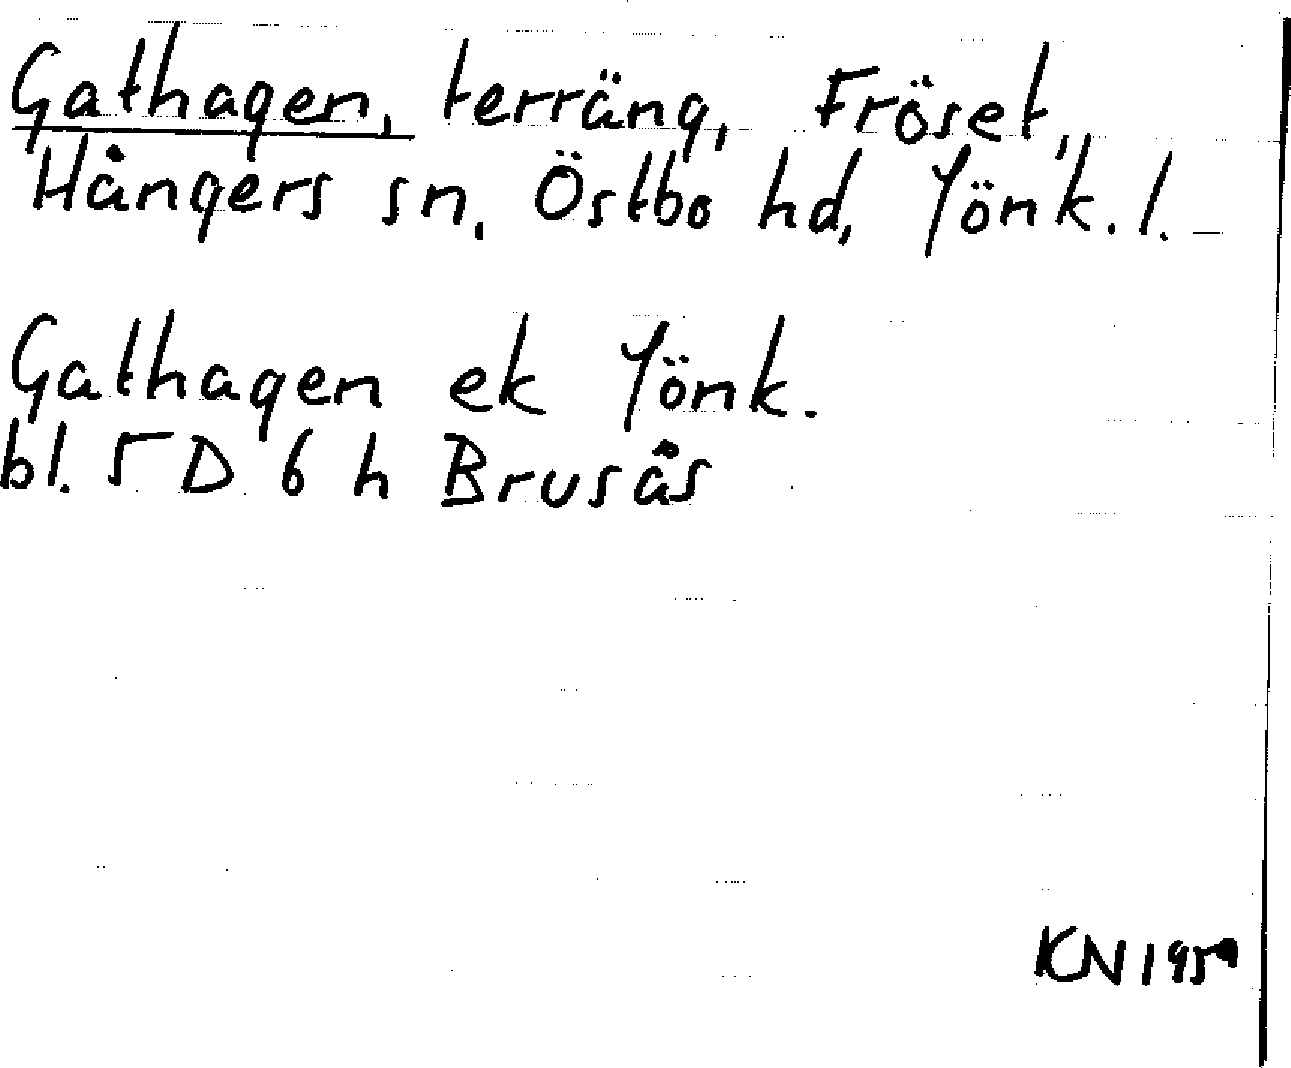 Gathagen, terräng, Fröset,
Hångers sn, Östbo hd, Jönk. l. –
Gathagen ek Jönk.
bl. 5 D 6 h Brusås
KN 1959